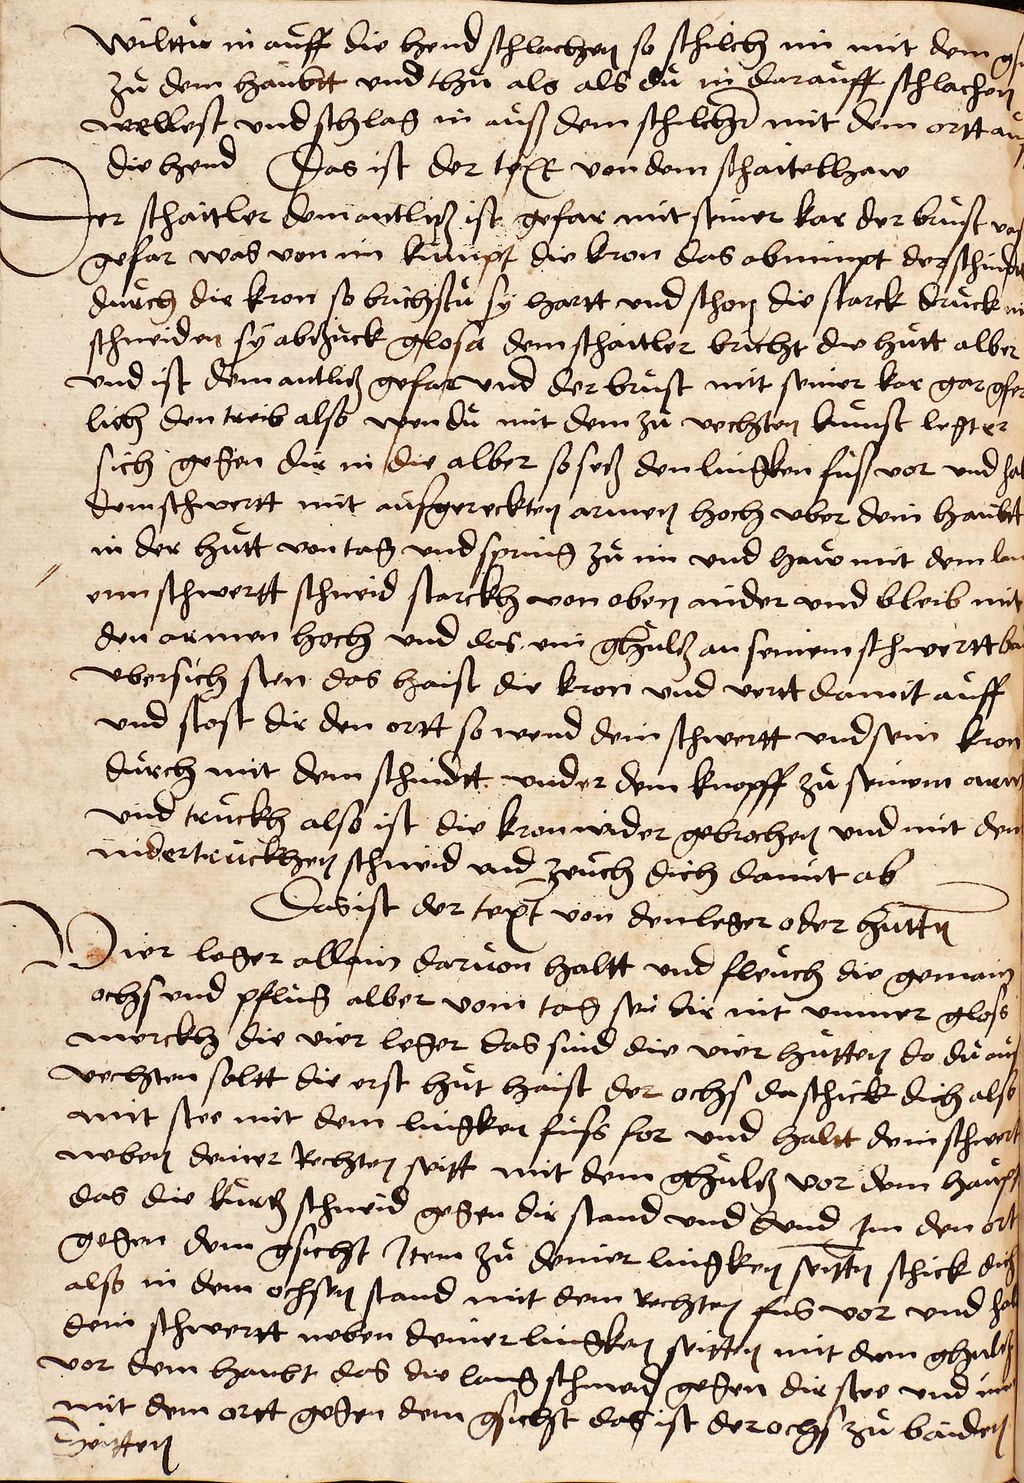 wilttu in auff die hend schlachen so schilch im mit dem
zu dem haubtt und thu als als du in darauff schlachen
wellest und schlag in auß dem schilcher mit dem ortt auff
die hend Das ist der text von dem schaittelhaw
Der schaittler dem antlitz ist gefar mit seiner kar der brust vast
gefar was von im kumpt die kron das abnimpt der schnidt
durch die kron so brichstu sy hartt und schon die starck druck mit
schneiden sy abzuck glosa dem schaittler bricht die hutt alber
und ist dem antlitz gefar und der brust mit seiner kar gar gfer
lich den treib also wen du mit dem zu vechten kumst legt er
sich gegen dir in die alber so setz den lingken fuß vor und halt
dem schwertt mit aufgereckten armen hoch vber dein haubtt
in der hutt von tag und spring zu im und haw mit dem lan
enn schwertt schneid starckh von oben nider und bleib mit
den armen hoch und das ein ghultz an seinem schwertt
vbersich sten das haist die kron und vertt damit auff
und stost dir den ortt so wend dein schwertt und sein kron
durch mit dem schnidtt under dem knopff zu seinem arm
und truckh also ist die kron wider gebrochen und mit dem
nidertruckhen schneid und zeuch dich damit ab
Das ist der text von den leger oder hutten
Vier leger allain daruon haltt und fleuch die gemain
ochs und pflug alber vom tag sei dir nit unmer glos
merckh die vier leger das sind die vier hutten do du auß
vechten soltt die erst hut haist der ochs da schick dich also
mit stee mit dem lingken fuß for und haltt dein schwertt
neben deiner Rechten seitt mit dem ghultz vor dem haupt
das die kurtz schneid gegen dir stand und wend Im den ort
gegen dem gsicht Item zu deiner lingken seitten schick dich
also in dem ochsen stand mit dem Rechten fus vor und halt
dein schwertt neben deiner lingken seitten mit dem ghultz
vor dem haubt das die lang schneid gegen dir stee und im
mit dem ortt gegen dem gsicht das ist der ochs zu baiden
Seitten